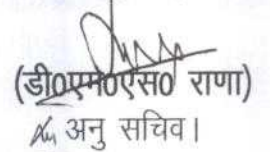 (डी0एम0एस0 राणा)
अनु सचिव।